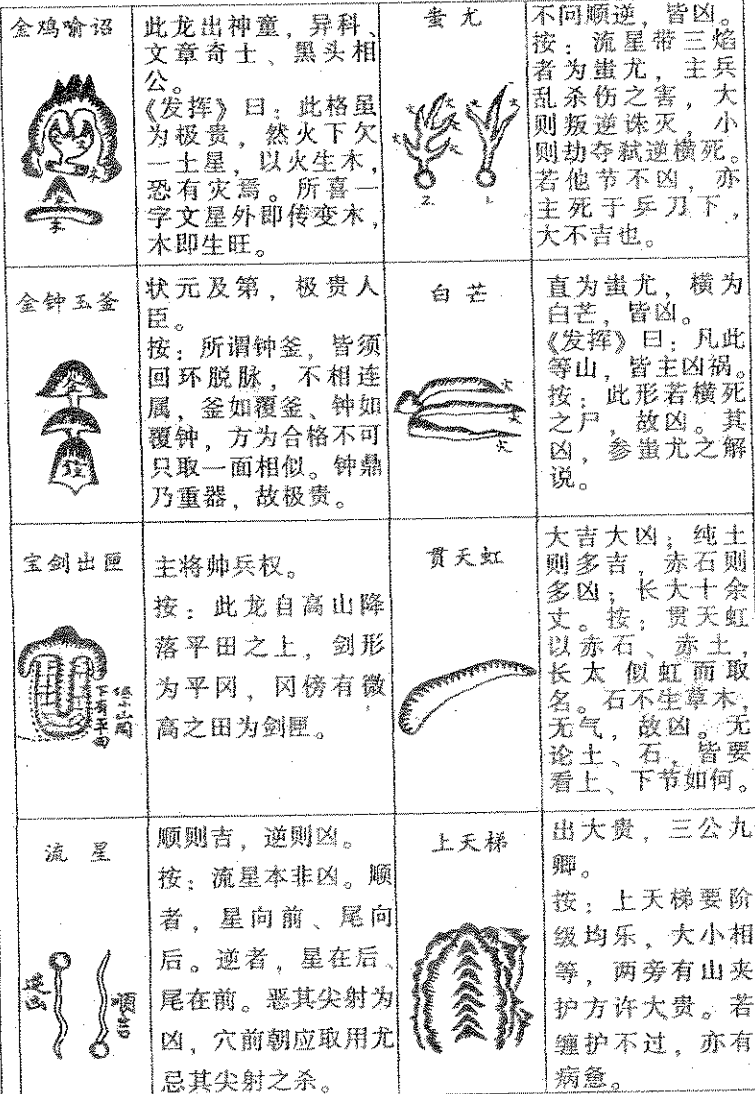 金鸡喻诏
金
木
木
此龙出神童，异科、
文章奇士、黑头相
公。
《发挥》曰：此格虽
为极贵，然火下欠
一土星，以火生木，
恐有灾焉。所喜一
字文星外即传变木，
木即生旺。
蚩尤
火
火
火
火
火
火
2
1
不问顺逆，皆凶。
按：流星带三焰
者为蚩尤，主兵
乱杀伤之害，大
则叛逆诛灭，小
则劫夺弑逆横死。
若他节不凶，亦
主死于乒刀下，
大不吉也。
金钟玉釜
金
鐘
状元及第，极贵人
臣。
按：所谓钟釜，皆须
回环脱脉，不相连
属，釜如覆釜、钟如
覆钟，方为合格不可
只取一面相似。钟鼎
乃重器，故极贵。
白芒
火
火
火
直为蚩尤，横为
白芒，皆凶。
《发挥》曰：凡此
等山，皆主凶祸。
按：此形若横死
之尸，故凶。其
凶，参蚩尤之解
说。
宝剑出匣
下有平田
主将帅兵权。
按：此龙自高山降
落平田之上，剑形
为平冈，冈傍有微
高之田为剑匣。
贯天虹
大吉大凶；纯土
则多吉，赤石则
多凶；长大十余
丈。按：贯天虹
以赤石、赤土，
长太 似虹而取
名。石不生草木，
无气，故凶。无
论土、石，皆要
看上、下节如何。
流星
逆凶
順吉
顺则吉，逆则凶。
按：流星本非凶。顺
者，星向前、尾向
后。逆者，星在后、
尾在前。恶其尖射为
凶，穴前朝应取用尤
忌其尖射之杀。
上天梯
出大贵，三公九
卿。
按：上天梯要阶
级均乐，大小相
等，两旁有山夹
护方许大贵。若
缠护不过，亦有
病惫。